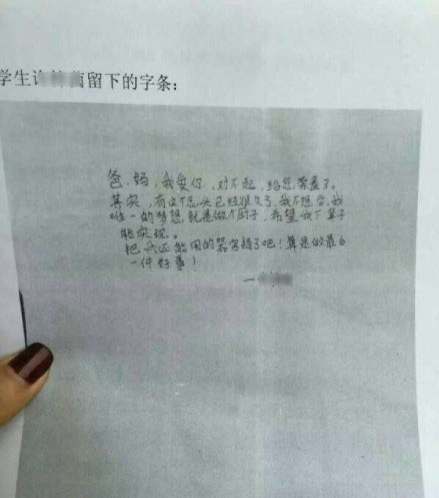 学生留下的字条:
爸,妈,我爱你,对不起,给您蒙羞了。
其实,有这个念头已经很久了,我不想,我
唯一的梦想就是做个厨子,希望我下辈子
能实现。
把我还能用的器官捐了吧!算是做最后
一件好事!